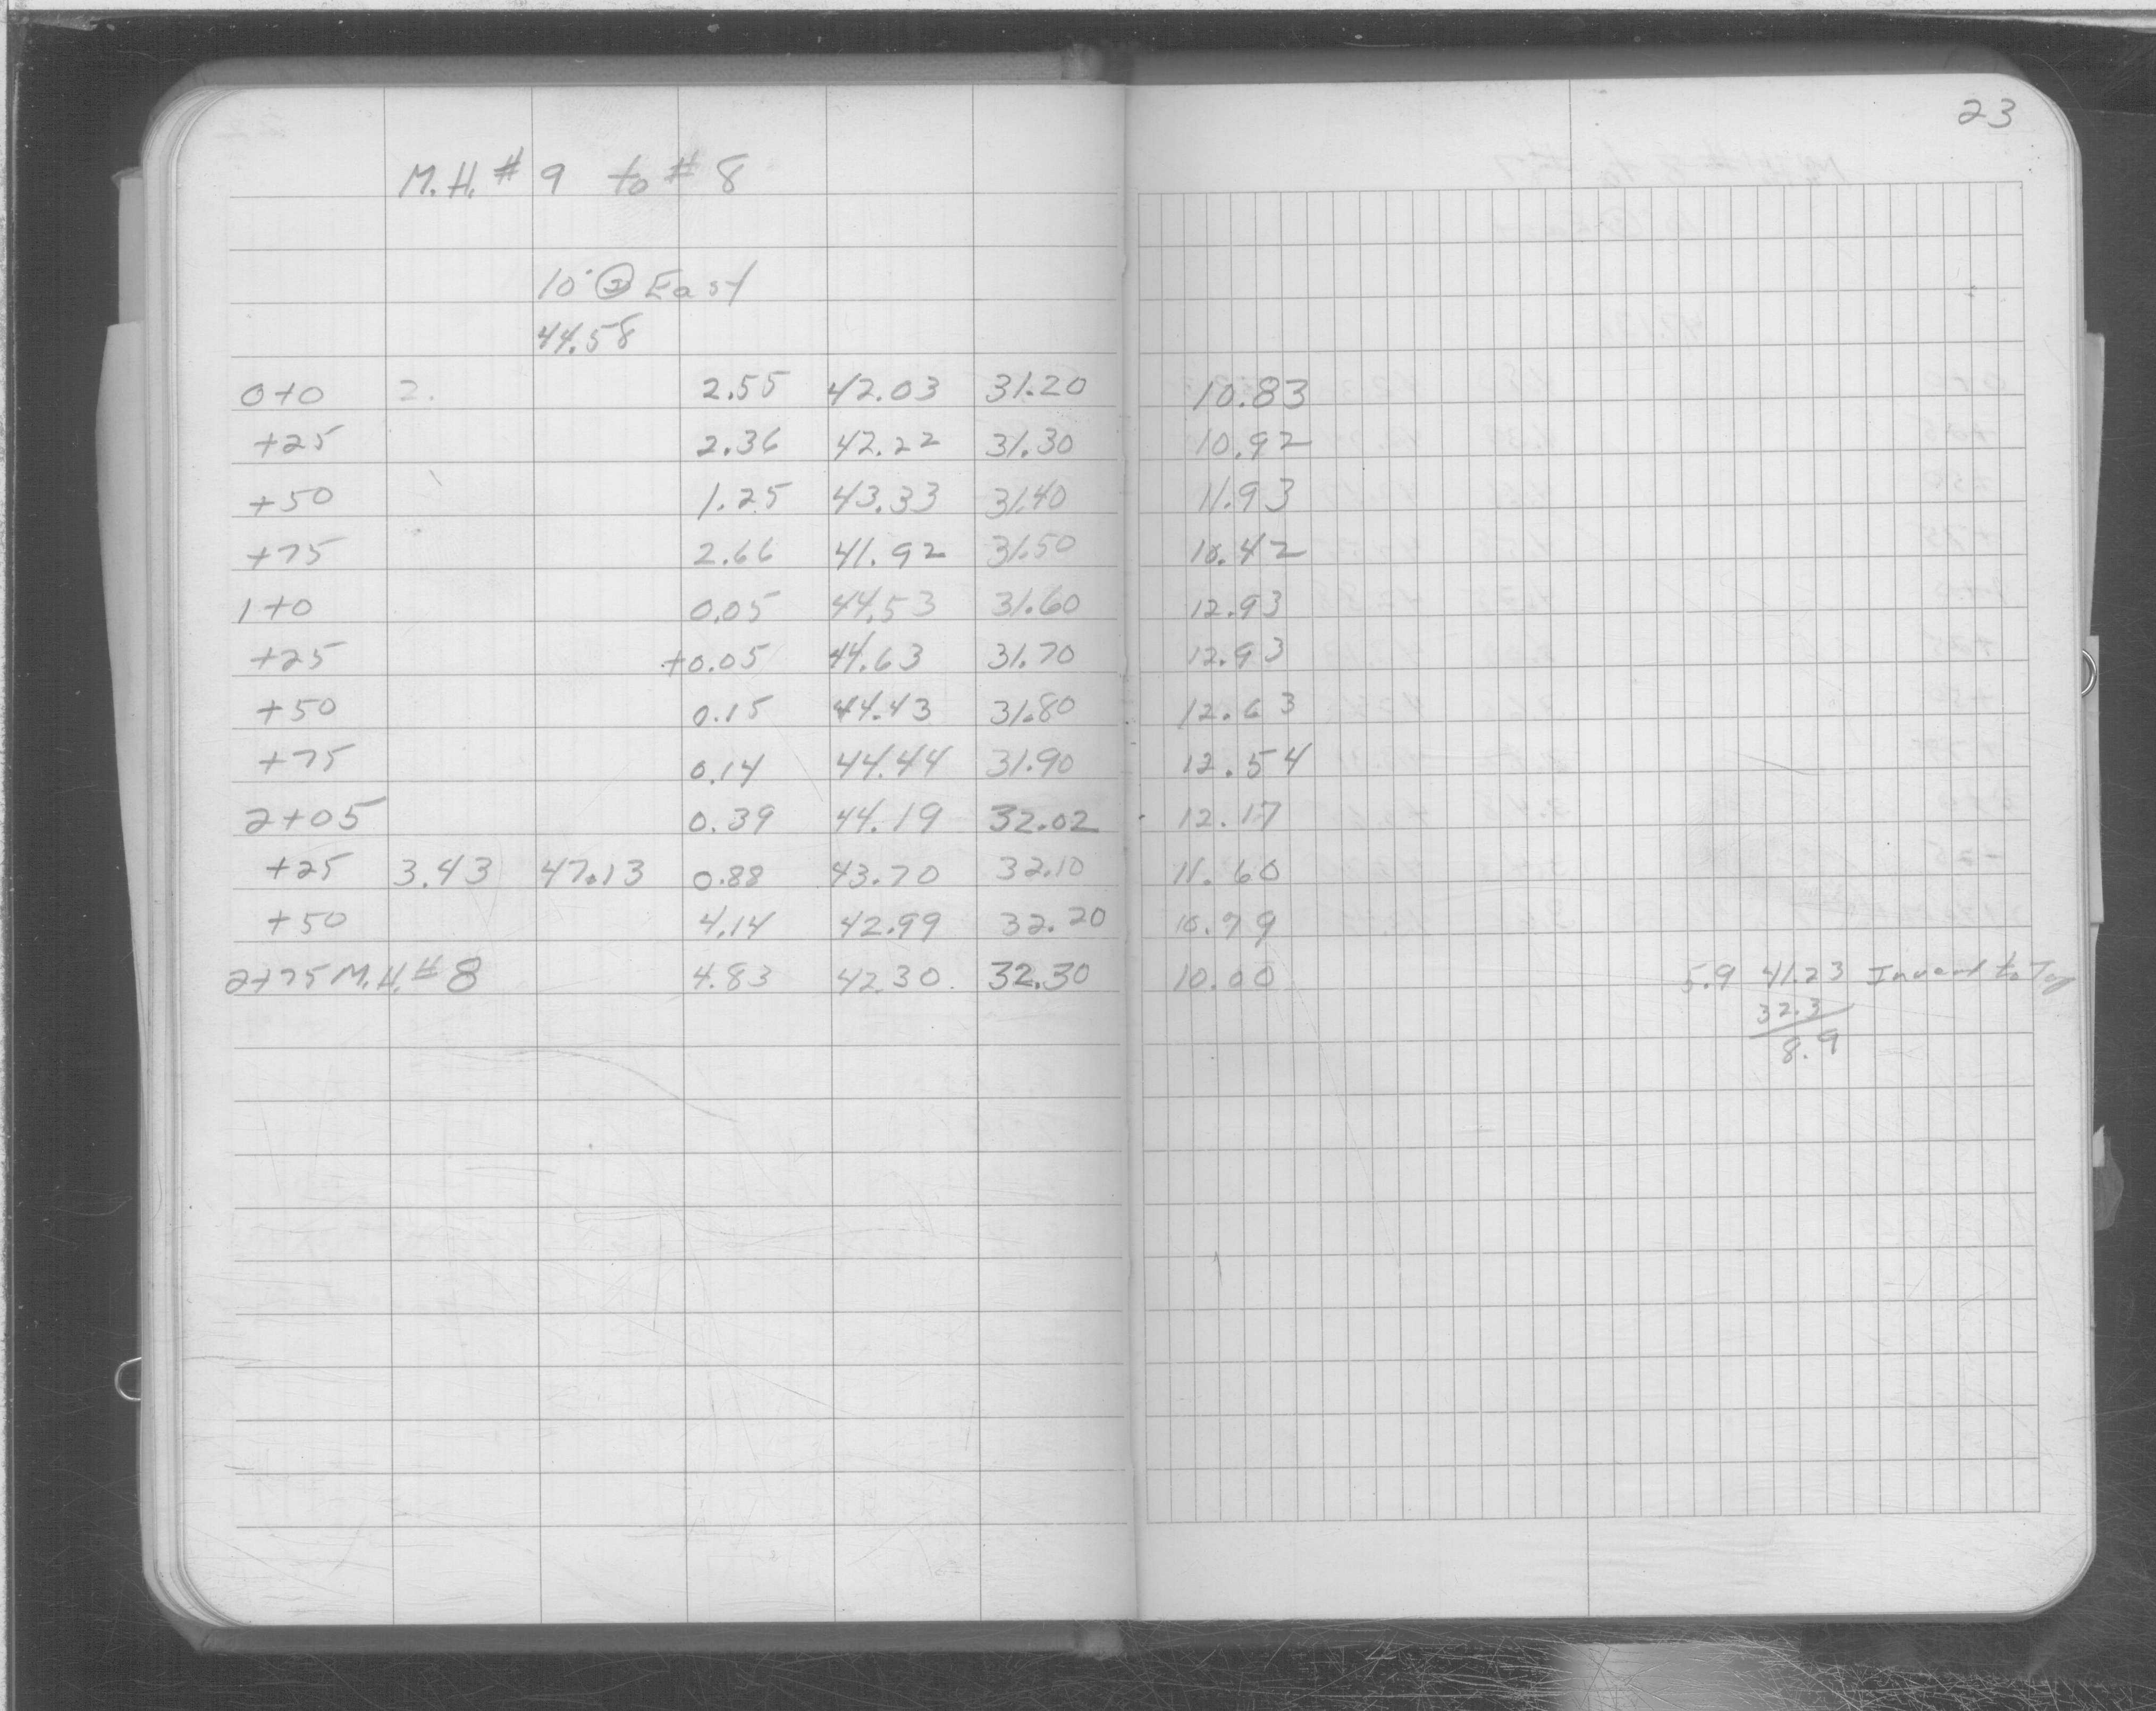 23
M.H. # 9 to # 8
10' @ East
44.58
0+0 2. 2.55 42.03 31.20 10.83
+25 2.36 42.22 31.30 10.92
+50 1.25 43.33 31.40 11.93
+75 2.66 41.92 31.50 10.42
1+0 0.05 44.53 31.60 12.93
+25 +0.05 44.63 31.70 12.93
+50 0.15 44.43 31.80 12.63
+75 0.14 44.44 31.90 12.54
2+05 0.39 44.19 32.02 12.17
+25 3.43 47.13 0.88 43.70 32.10 11.60
+50 4.14 42.99 32.20 10.79
2+75 M.H. # 8 4.83 42.30 32.30 10.00 5.9 41.23 Invert to Top
32.3
8.9